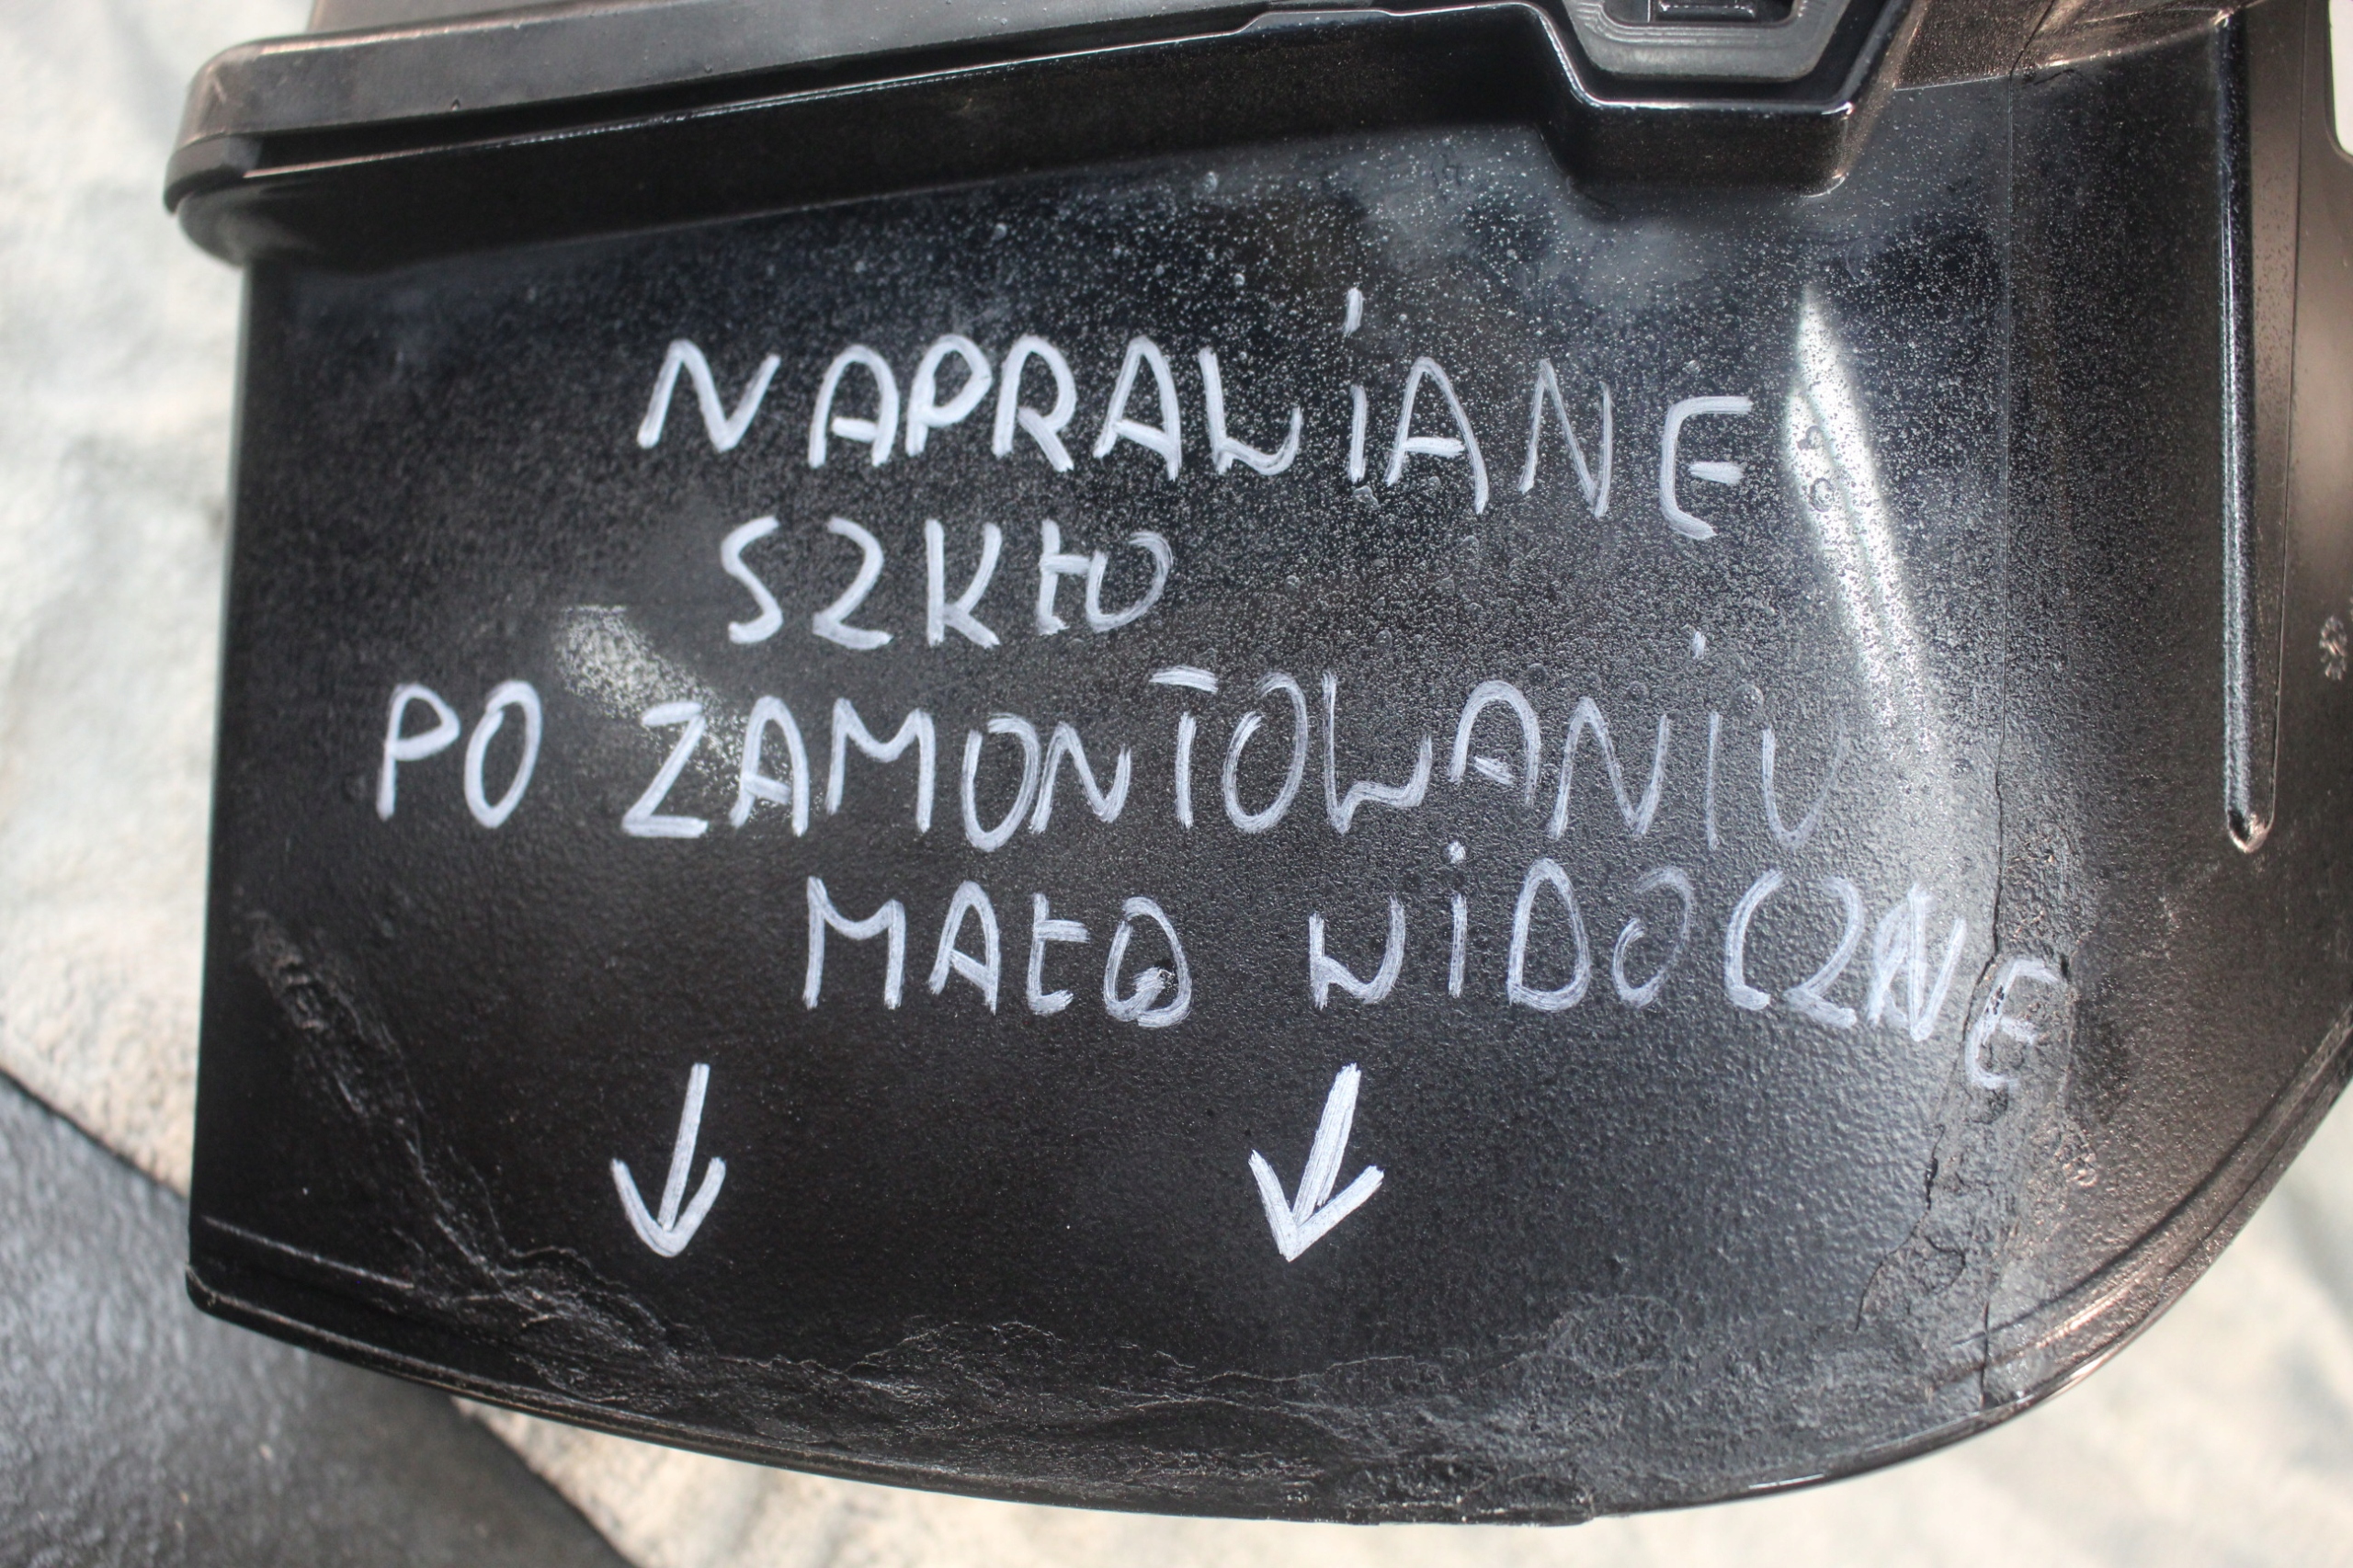 NAPRAWIANE
SZKŁO
PO ZAMONTOWANIU
MAŁO WIDOCZNE